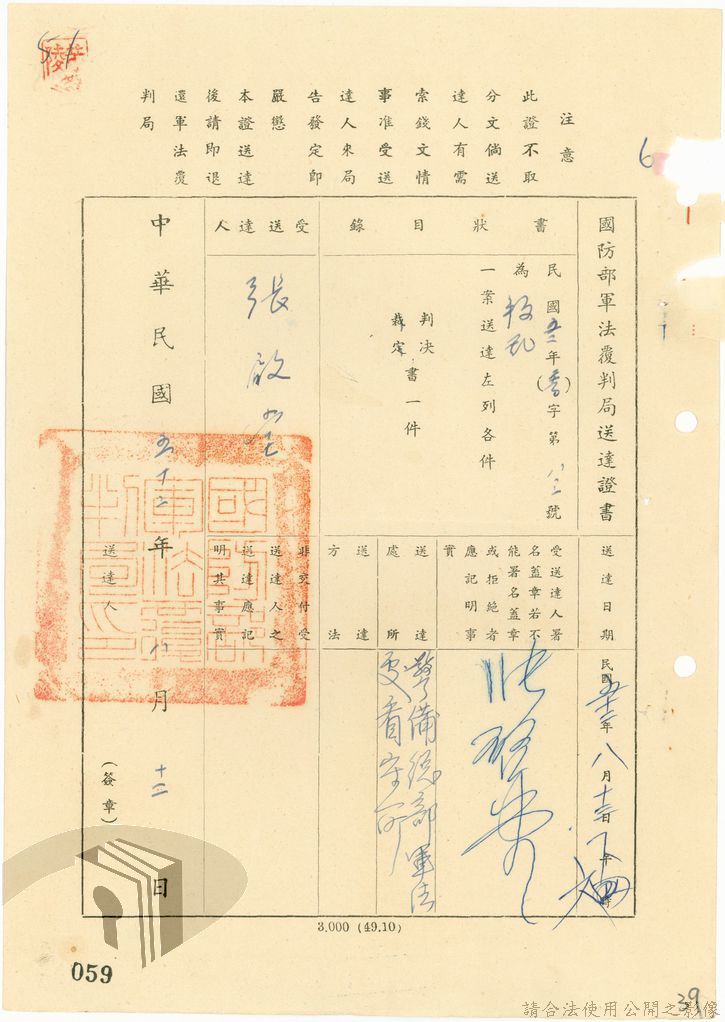 注意
此證不取
分文倘送
達人有需
索錢文情
事准受送
達人來局
告發定即
嚴懲
本證送達
後請即退
還軍法覆
判局
6
國防部軍法覆判局送達證書
書狀目錄
民國五二年(喬)字第八三號
為叛亂
一案送達左列各件
判決
裁定
書一件
受送達人
張啟
中華民國五十二年八月十二日
送達日期
民國五十二年八月十三日
受送達人署
名蓋章若不
能署名蓋章
或拒絕者
應記明事
實
張啟
送達處所
警備總部軍法
處看守所
送達方法
非交付受
送達人之
送達應記
明其事實
送達人
(簽章)
國防部
軍法覆
判局印
3.000 (49.10)
059
39
請合法使用公開之影像